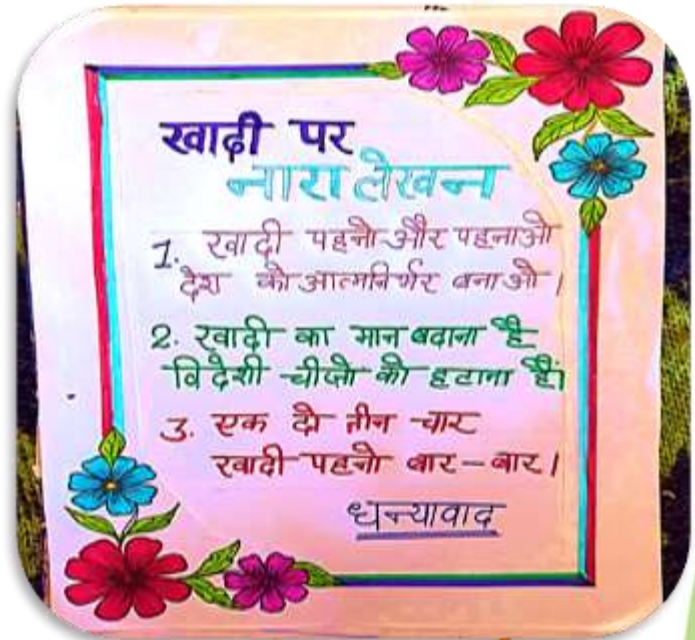 खाढ़ी पर
नारा लेखन
1. खादी पहनो और पहनाओ
देश को आत्मनिर्भर बनाओ।
2. खादी का मान बढाना है
विदेशी चीजो को हटाना हैं।
3. एक दो तीन चार
खादी पहनो बार-बार।
धन्यावाद